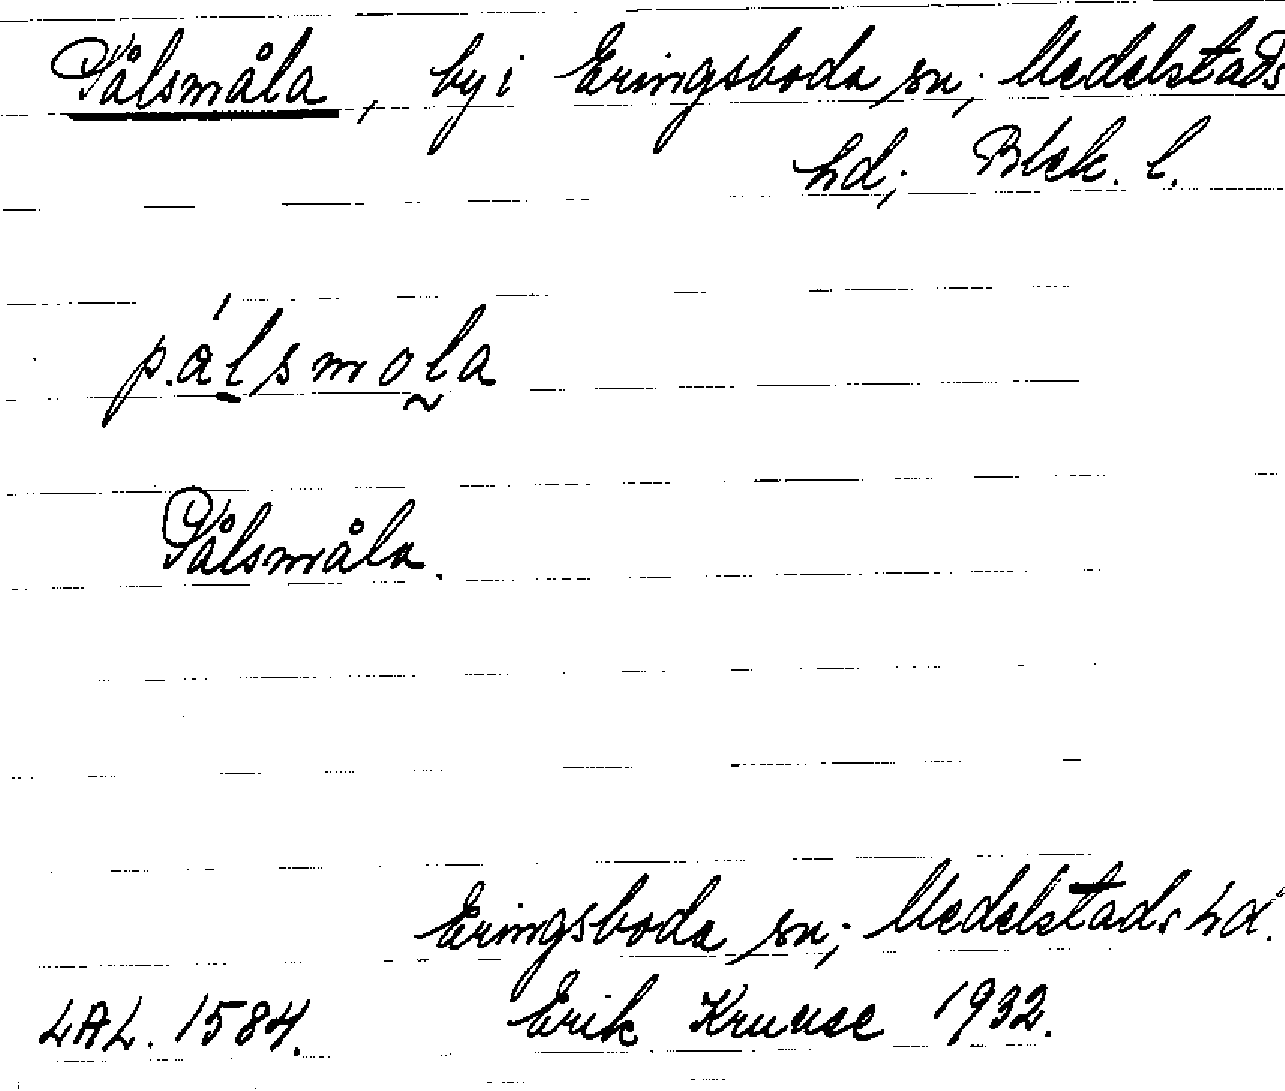 Pålsmåla, by i Eringsboda sn; Medelstads
hd; Blek. l.
pálsmola
Pålsmåla.
Eringsboda sn; Medelstads hd.
LAL. 1584. Erik Kruuse 1932.